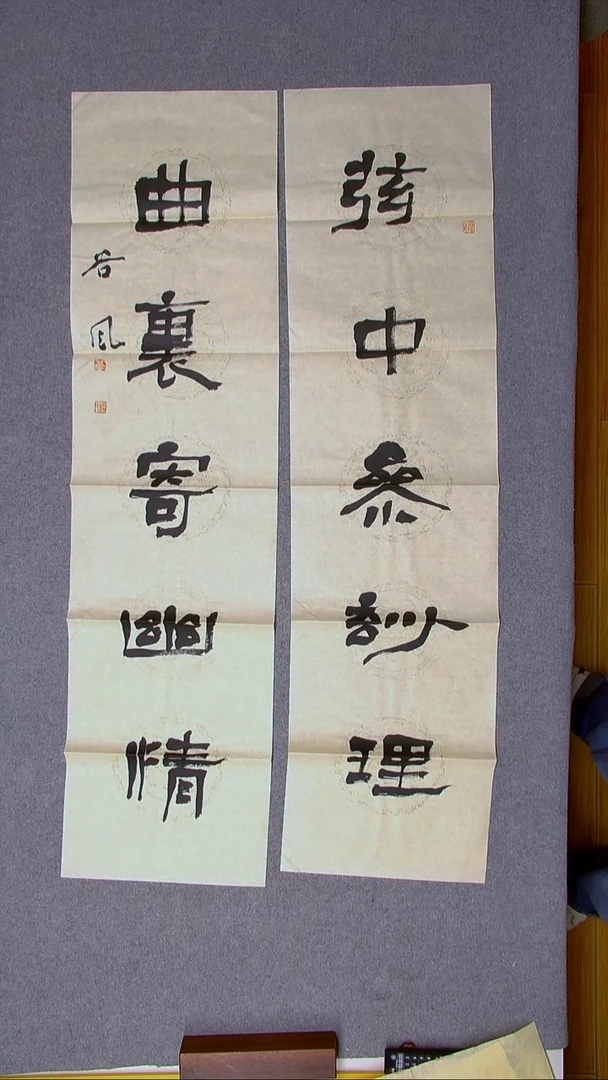 弦中參玅理
曲裏寄幽情
谷風